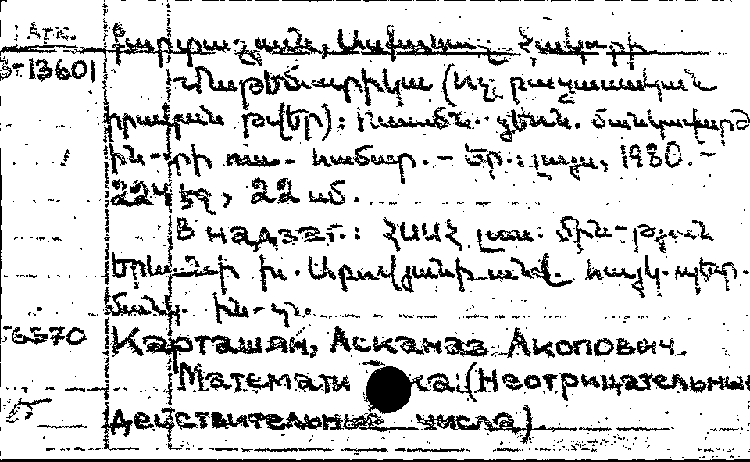 Атк.
Քարտաշյան, Ասքանազ Հակոբի
13601
Մաթեմատիկա (Ոչ բացասական
իրական թվեր):
ին-տի ուս. համար. - Եր.: Լույս, 1980. -
224 էջ, 22 սմ.
В надзаг.: ՀՍՍՀ լուս. մին-թյուն
Երևանի Խ. Աբովյանի անվ. հայկ. պետ.
մանկ. ին-տ.
56570
Карташян, Асканаз Акопович.
Математика (Неотрицательные
действительные числа).